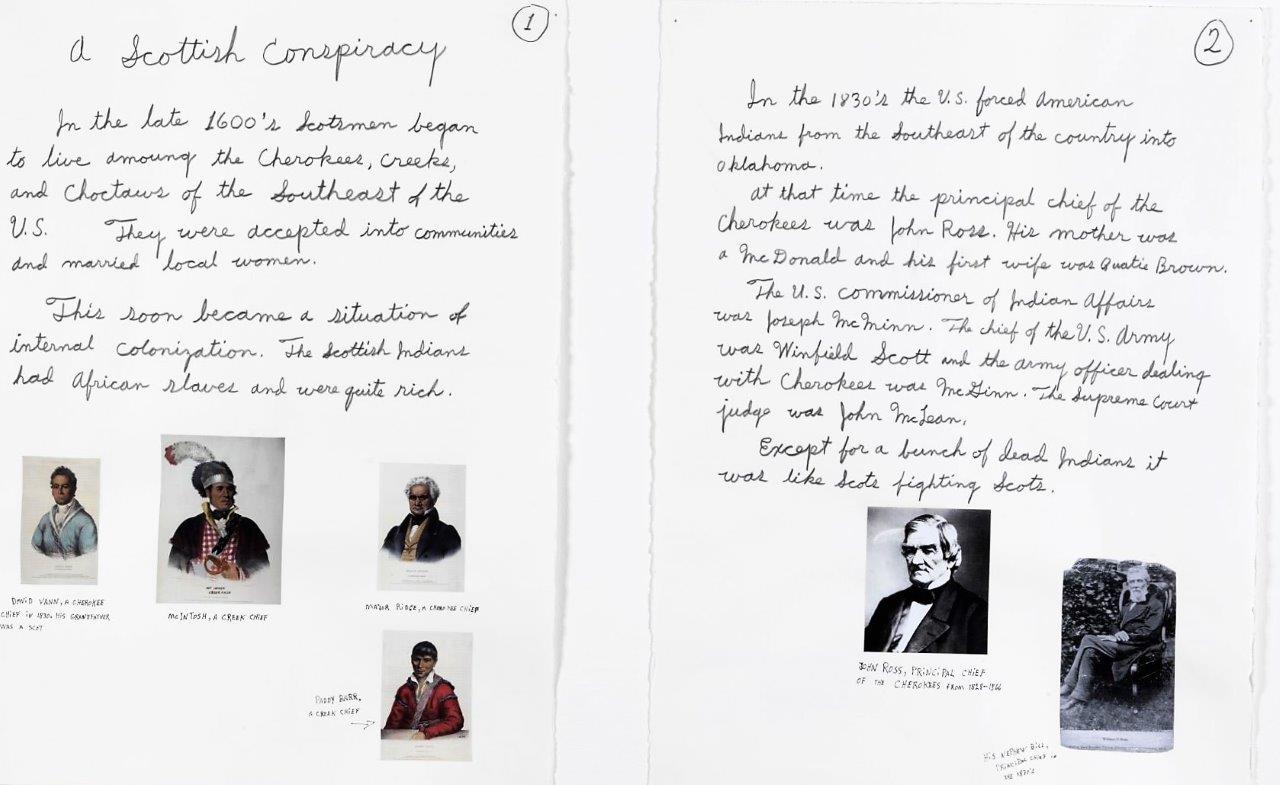 1
A Scottish Conspiracy
In the late 1600's Scotsmen began
to live amoung the Cherokees, Creeks,
and Choctaws of the Southeast of the
U.S. They were accepted into communities
and married local women.
This soon became a situation of
internal colonization. The Scottish Indians
had African slaves and were quite rich.
DAVID VANN, A CHEROKEE
CHIEF in 1830. HIS GRANDFATHER
WAS A SCOT
McINTOSH, A CREEK CHIEF
MAJOR RIDGE, A CHEROKEE CHIEF
PADDY CARR,
A CREEK CHIEF
2
In the 1830's the U.S. forced American
Indians from the Southeast of the country into
Oklahoma.
At that time the principal chief of the
Cherokees was John Ross. His mother was
a McDonald and his first wife was Quatie Brown.
The U.S. commissioner of Indian Affairs
was Joseph McMinn. The chief of the U.S. Army
was Winfield Scott and the army officer dealing
with Cherokees was McGinn. The Supreme Court
judge was John McLean.
Except for a bunch of dead Indians it
was like Scots fighting Scots.
JOHN ROSS, PRINCIPAL CHIEF
OF THE CHEROKEES from 1828-1866
HIS NEPHEW BILL,
PRINCIPAL CHIEF in
THE 1870's